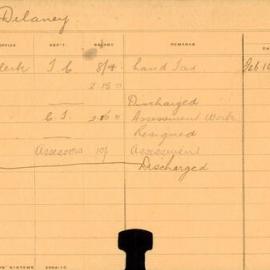 Delaney
OFFICE DEP'T. SALARY REMARKS
Clerk T C 8/4 Land Tax Feb 1
2 15 0
Discharged
C T Assessment Work
Resigned
Assessors 10/ Assessment
Discharged